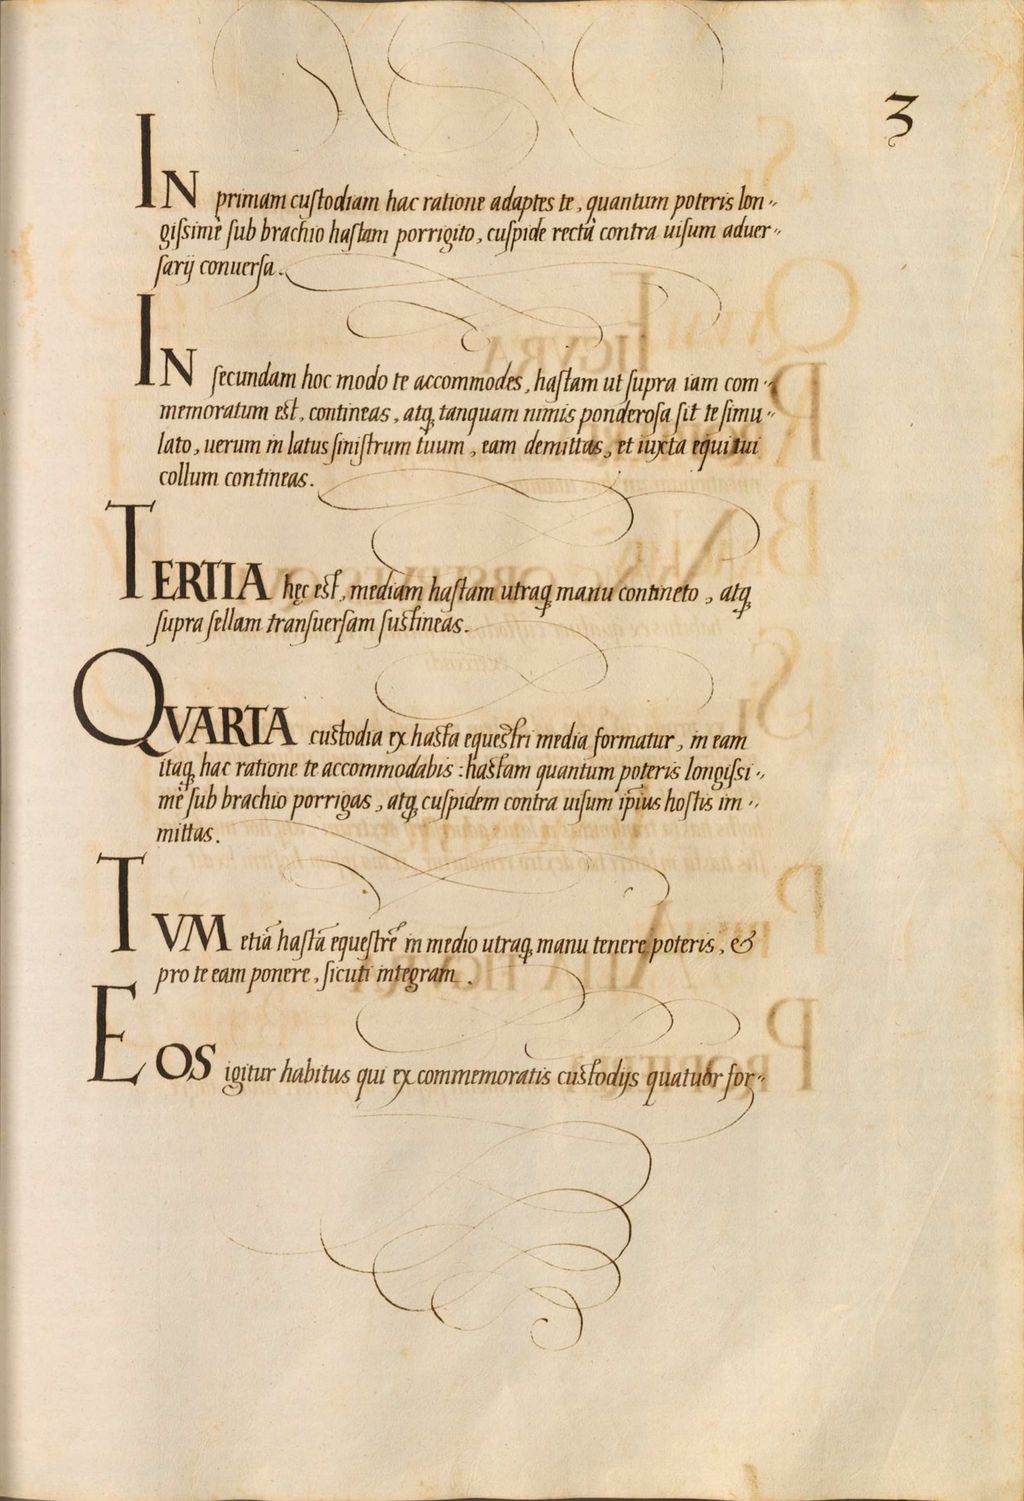 3
IN primam cuſtodiam hac ratione adaptes te, quantum poteris lon-
giſsimè ſub brachio haſtam porrigito, cuſpide rectà contra uiſum aduer-
ſarij conuerſa.
IN ſecundam hoc modo te accommodes, haſtam ut ſupra iam com-
memoratum eſt, contineas, atq tanquam nimis ponderoſa ſit te ſimu-
lato, uerum in latus ſiniſtrum tuum, eam demittas, et iuxta equi tui
collum contineas.
TERTIA hęc eſt, mediam haſtam utraq manu contineto, atq
ſupra ſellam tranſuerſam ſuſtineas.
QVARTA cuſtodia ex haſta equeſtri media formatur, in eam
itaq hac ratione te accommodabis: haſtam quantum poteris longiſsi-
mè ſub brachio porrigas, atq cuſpidem contra uiſum ip̄ius hoſtis im-
mittas.
TVM etiā haſtā equeſtrē in medio utraq manu tenere poteris, &
pro te eam ponere, ſicuti integram.
EOS igitur habitus qui ex commemoratis cuſtodijs quatuor for-